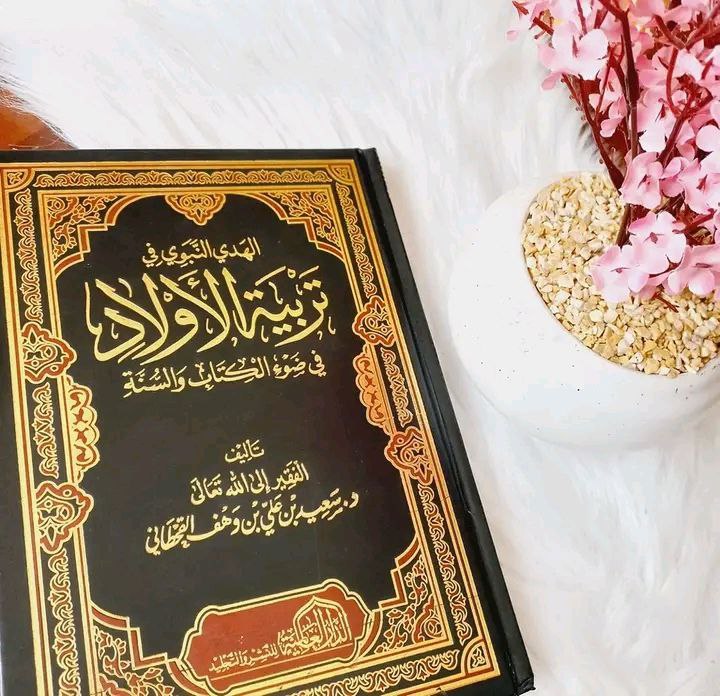 الهدي النبوي في
تربية الأولاد
في ضوء الكتاب والسنة
تأليف
الفقير إلى الله تعالى
د. سعيد بن علي بن وهف القحطاني
الدار العالمية
للنشر والتجليد